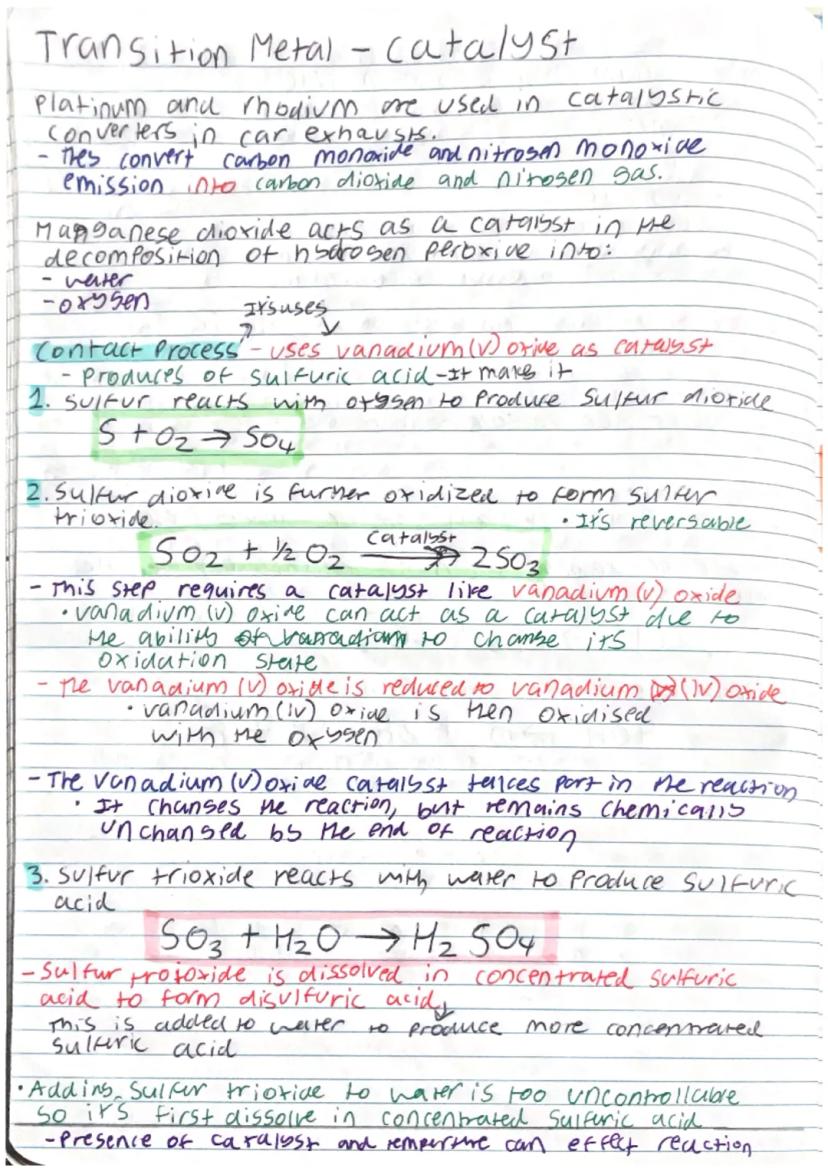 Transition Metal - Catalyst
Platinum and rhodium are used in catalystic
converters in car exhausts.
- They convert carbon monoxide and nitrogen monoxide
emission into carbon dioxide and nitrogen gas.
Manganese dioxide acts as a catalyst in the
decomposition of hydrogen peroxide into:
- water
- oxygen
It's uses
Contact Process - uses vanadium(v) oxide as catalyst
- Produces of sulfuric acid - It makes it
1. Sulfur reacts with oxygen to produce Sulfur dioxide
S + O2 → SO4
2. Sulfur dioxide is further oxidized to form sulfur
trioxide.
• It's reversable
Catalyst
SO2 + ½ O2 → 2SO3
- This step requires a catalyst like vanadium(v) oxide
• vanadium (v) oxide can act as a catalyst due to
the ability of vanadium to change its
oxidation state
- The vanadium (v) oxide is reduced to vanadium (iv) oxide
• vanadium (iv) oxide is then oxidised
with the oxygen
- The vanadium (v) oxide catalyst takes part in the reaction
• It changes the reaction, but remains chemically
unchanged by the end of reaction
3. Sulfur trioxide reacts with water to produce sulfuric
acid
SO3 + H2O → H2SO4
- Sulfur trioxide is dissolved in concentrated sulfuric
acid to form disulfuric acid,
This is added to water to produce more concentrated
sulfuric acid
• Adding sulfur trioxide to water is too uncontrollable
so it's first dissolve in concentrated sulfuric acid
- Presence of catalyst and temperture can effect reaction